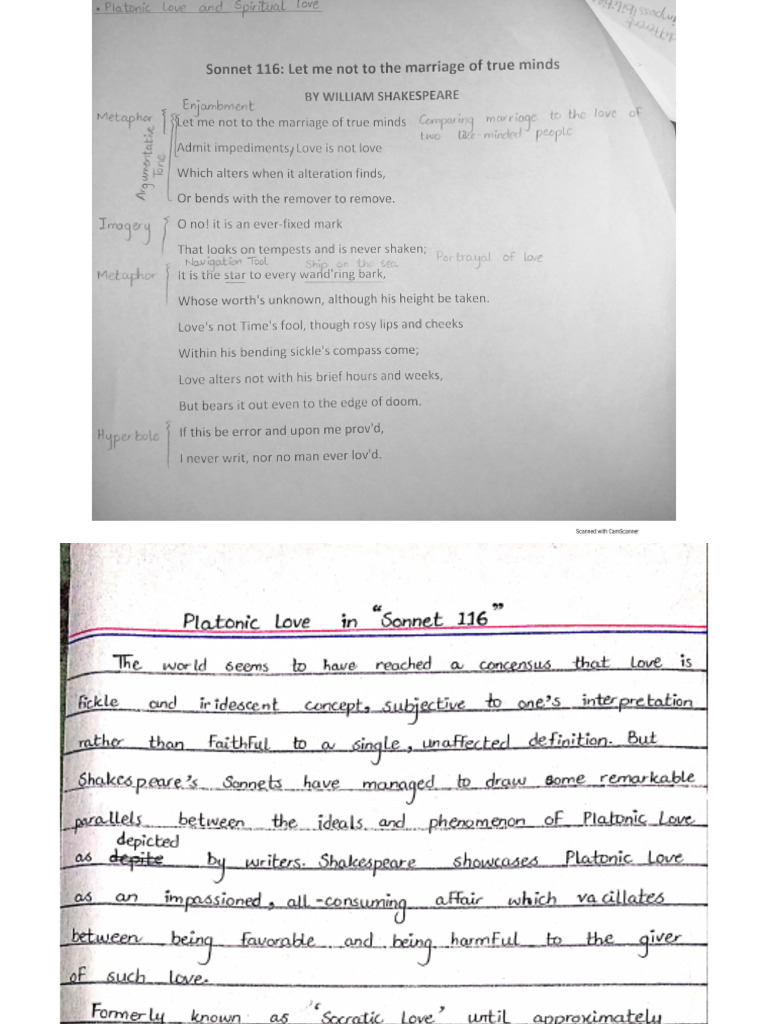 • Platonic Love and Spiritual Love
Sonnet 116: Let me not to the marriage of true minds
BY WILLIAM SHAKESPEARE
Enjambment
Metaphor
Let me not to the marriage of true minds
Comparing marriage to the love of
two like-minded people
Argumentative
Tone
Admit impediments, Love is not love
Which alters when it alteration finds,
Or bends with the remover to remove.
Imagery
O no! it is an ever-fixed mark
That looks on tempests and is never shaken;
Portrayal of love
Navigation Tool
Ship on the sea
Metaphor
It is the star to every wand'ring bark,
Whose worth's unknown, although his height be taken.
Love's not Time's fool, though rosy lips and cheeks
Within his bending sickle's compass come;
Love alters not with his brief hours and weeks,
But bears it out even to the edge of doom.
Hyperbole
If this be error and upon me prov'd,
I never writ, nor no man ever lov'd.
Scanned with CamScanner
Platonic Love in "Sonnet 116"
The world seems to have reached a concensus that love is
fickle and iridescent concept, subjective to one's interpretation
rather than faithful to a single, unaffected definition. But
Shakespeare's Sonnets have managed to draw some remarkable
parallels between the ideals and phenomenon of Platonic Love
depicted
as depite by writers. Shakespeare showcases Platonic Love
as an impassioned, all-consuming affair which vacillates
between being favorable and being harmful to the giver
of such love.
Formerly known as "Socratic Love" until approximately